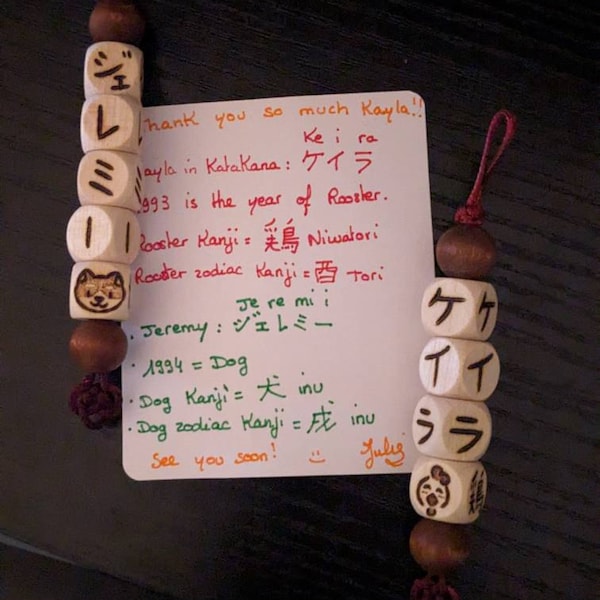 Thank you so much Kayla!!
Ke i ra
Kayla in Katakana : ケイラ
1993 is the year of Rooster.
Rooster Kanji = 鶏 Niwatori
Rooster zodiac Kanji = 酉 Tori
Je re mi i
· Jeremy : ジェレミー
· 1994 = Dog
· Dog Kanji = 犬 inu
· Dog zodiac Kanji = 戌 inu
See you soon!
ジェ
レ
ミ
ー
ケ ケ
イ イ
ラ ラ
鶏